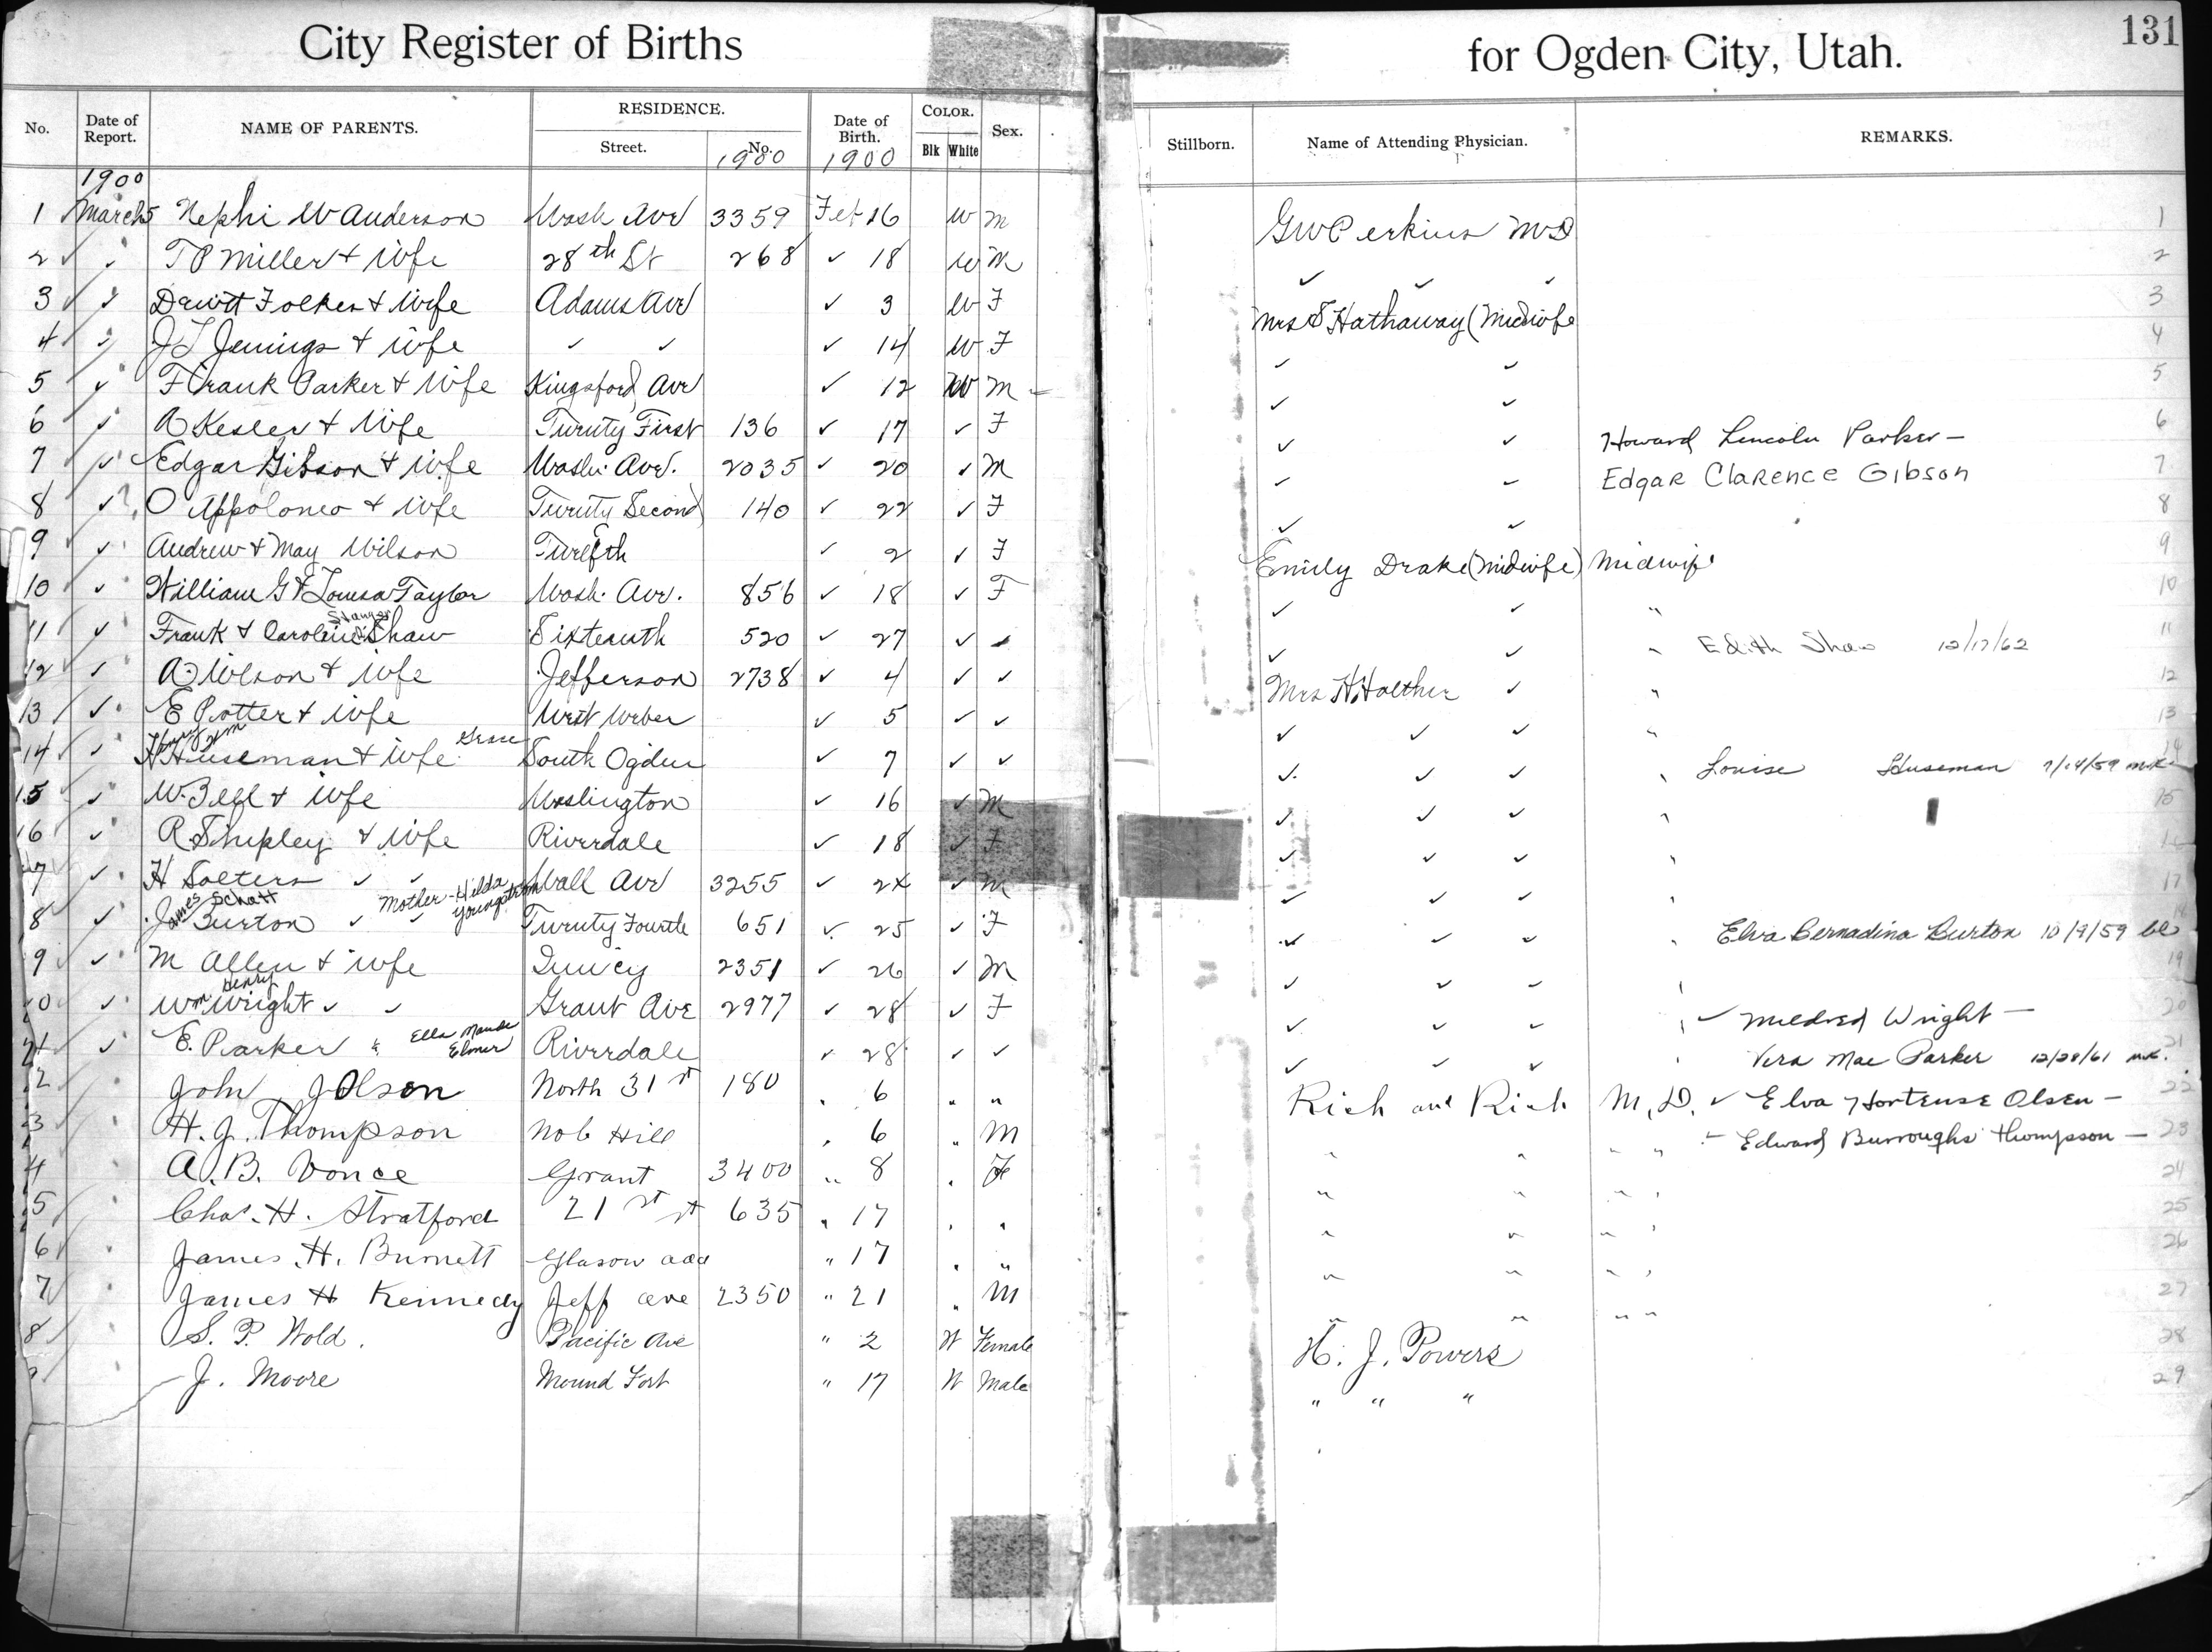 City Register of Births for Ogden City, Utah. 131
No. Date of Report. NAME OF PARENTS. RESIDENCE. Street. No. Date of Birth. COLOR. Blk White Sex. Stillborn. Name of Attending Physician. REMARKS.
1900 1900 1900
1 March 5 Nephi W Anderson Wash Ave 3359 Feb 16 W M G W Perkins M D 1
2 ✓ ✓ T P Miller & Wife 28th St 268 ✓ 18 W M ✓ ✓ ✓ 2
3 ✓ ✓ Dewitt Folker & Wife Adams Ave ✓ 3 W F Mrs S Hathaway (Midwife 3
4 ✓ J L Jenings & Wife ✓ ✓ ✓ 14 W F ✓ ✓ 4
5 ✓ Frank Parker & Wife Kingsford Ave ✓ 12 W M – ✓ ✓ 5
6 ✓ A Kesler & Wife Twenty First 136 ✓ 17 ✓ F ✓ ✓ Howard Lincoln Parker – 6
7 ✓ Edgar Gibson & Wife Wash. Ave. 2035 ✓ 20 ✓ M ✓ ✓ Edgar Clarence Gibson 7
8 ✓? O Appoloneo & Wife Twenty Second 140 ✓ 22 ✓ F ✓ ✓ 8
9 ✓ Andrew & May Wilson Twelfth ✓ 2 ✓ F Emily Drake (Midwife) Midwife 9
10 ✓ William G & Louisa Taylor Wash. Ave. 856 ✓ 18 ✓ F ✓ ✓ " 10
Stanger
11 ✓ Frank & Caroline Shaw Sixteenth 520 ✓ 27 ✓ ✓ ✓ ✓ " Edith Shaw 12/17/62 11
12 ✓ A Wilson & Wife Jefferson 2738 ✓ 4 ✓ ✓ Mrs H Halther ✓ " 12
13 ✓ E Potter & Wife West Weber ✓ 5 ✓ ✓ ✓ ✓ ✓ " 13
Harry Wm Grace
14 ✓ H Huseman & Wife South Ogden ✓ 7 ✓ ✓ ✓ ✓ ✓ " Louise Huseman 7/14/59 mk 14
15 ✓ W. Bell & Wife Washington ✓ 16 ✓ M ✓ ✓ ✓ " 15
16 ✓ R. Shipley & Wife Riverdale ✓ 18 ✓ F ✓ ✓ ✓ " 16
7 ✓ H Solters ✓ ✓ Wall Ave 3255 ✓ 24 ✓ M ✓ ✓ ✓ 17
James Schatt Mother - Hilda Youngstrom
8 ✓ J Burton ✓ ✓ Twenty Fourth 651 ✓ 25 ✓ F ✓ ✓ ✓ " Elva Bernadina Burton 10/9/59 bl 18
9 ✓ M Allen & Wife Quincy 2351 ✓ 26 ✓ M ✓ ✓ ✓ " 19
Henry
0 ✓ Wm Wright ✓ ✓ Grant Ave 2977 ✓ 28 ✓ F ✓ ✓ ✓ " ✓ Mildred Wright – 20
Ella Maude Elmer
21 ✓ E. Parker & Riverdale ✓ 28 ✓ ✓ ✓ ✓ ✓ " Vera Mae Parker 12/28/61 mk. 21
2 John J Olson North 31st 180 " 6 " " Rich and Rich M.D. ✓ Elva Hortense Olsen – 22
3 H. J. Thompson Nob Hill " 6 " M " " " " Edward Burroughs Thompson – 23
4 A. B. Vonce Grant 3400 " 8 " F " " " " 24
5 Chas. H. Stratford 21st st 635 " 17 " " " " " " 25
6 James. H. Burnett Glasow add " 17 " " " " " " 26
7 James H Kennedy Jeff ave 2350 " 21 " M " " " " 27
8 S. P. Wold. Pacific Ave " 2 W Female H. J. Powers 28
J. Moore Mound Fort " 17 W Male " " " 29